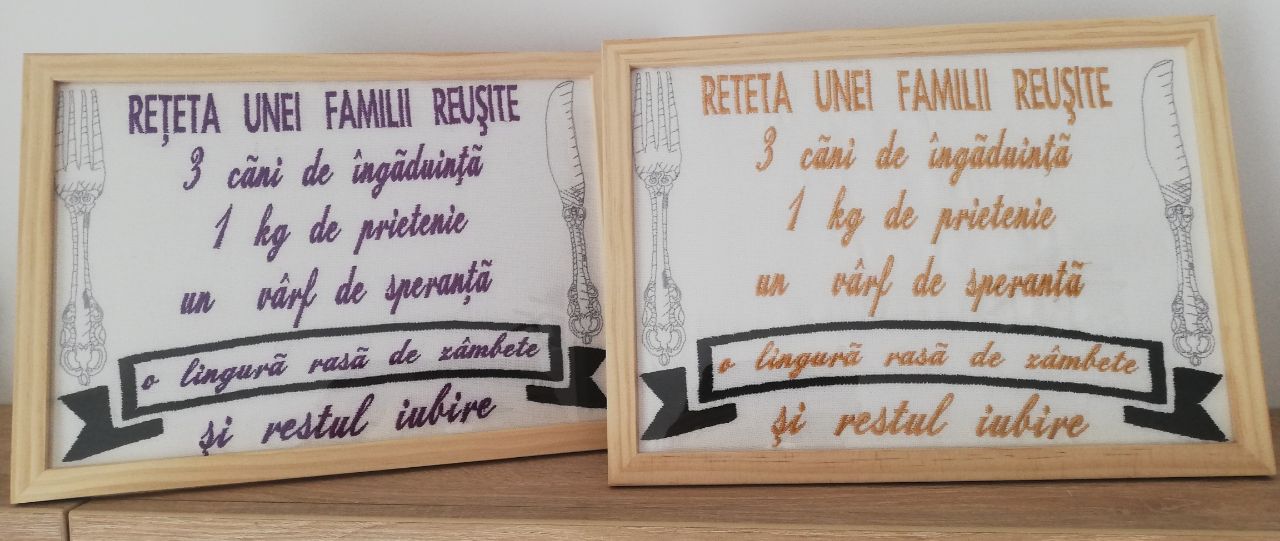 REȚETA UNEI FAMILII REUŞITE
3 cãni de îngãduinţã
1 kg de prietenie
un vârf de speranţã
o lingurã rasã de zâmbete
şi restul iubire
RETETA UNEI FAMILII REUŞITE
3 cãni de îngãduinţã
1 kg de prietenie
un vârf de speranţã
o lingurã rasã de zâmbete
şi restul iubire